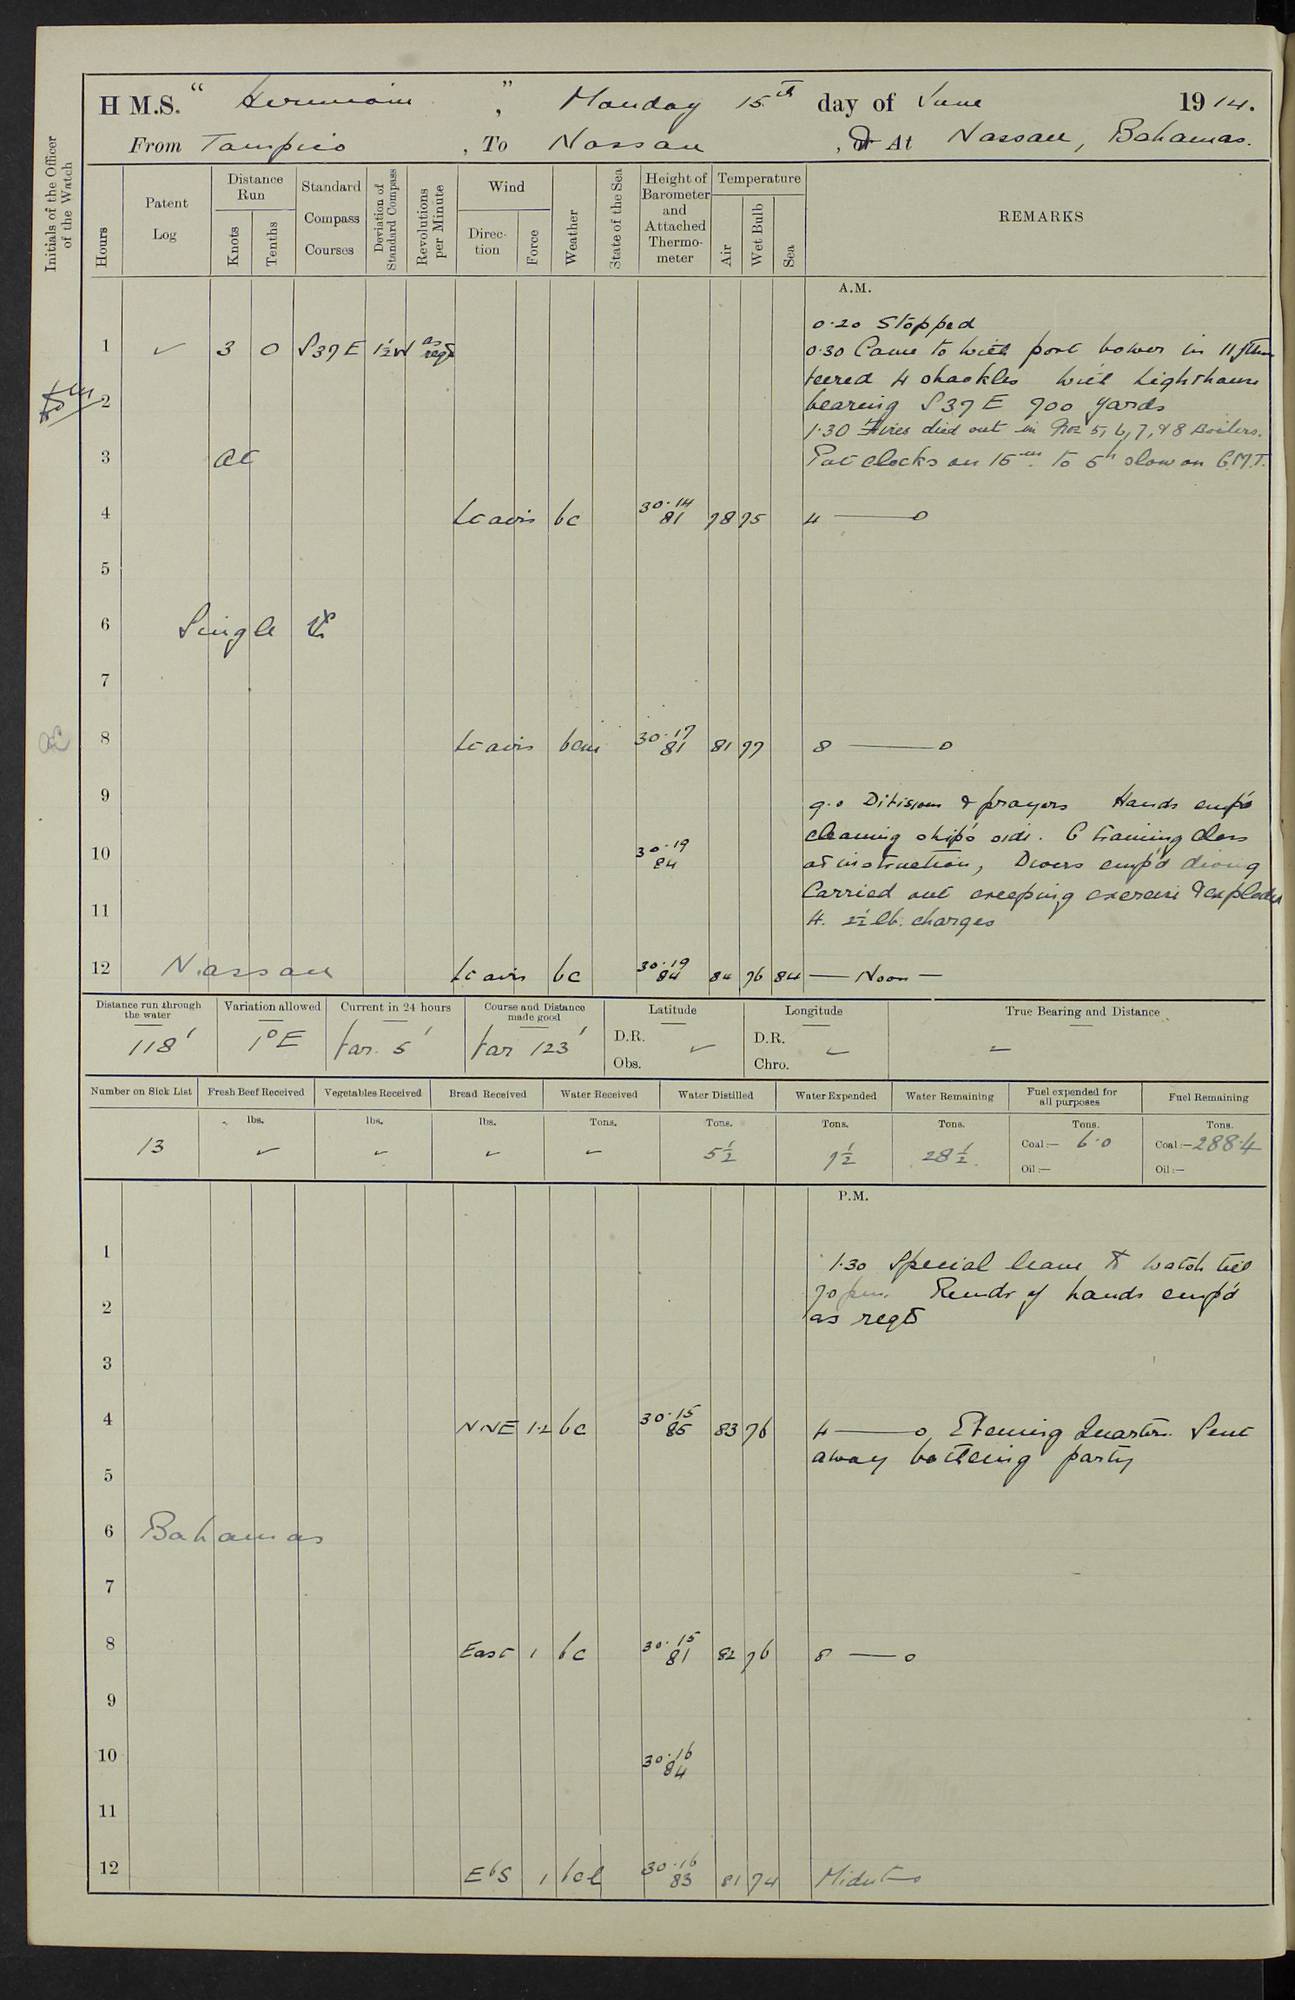 H.M.S. " Hermione ", Monday 15th day of June 1914.
From Tampico, To Nassau, or At Nassau, Bahamas.
Initials of the Officer of the Watch
Hours
Patent Log
Distance Run
Knots
Tenths
Standard Compass Courses
Deviation of Standard Compass
Revolutions per Minute
Wind
Direction
Force
Weather
State of the Sea
Height of Barometer and Attached Thermometer
Temperature
Air
Wet Bulb
Sea
REMARKS
A.M.
0.20 Stopped
1 ✓ 3 0 S37E 1½W as reqd
0.30 Came to with port bower in 11 fthm
veered 4 shackles with Lighthouse
2
bearing S 37 E 700 yards
1.30 Fires died out in Nos 5, 6, 7, & 8 Boilers.
3 At
Put clocks on 15m to 5h slow on G.M.T.
4 Lt airs bc 30.14 81 78 75 4 —— 0
5
6 Single
7
8 Lt airs bcm 30.17 81 81 77 8 —— 0
9
9.0 Divisions & prayers Hands emp'd
cleaning ship's side. G training class
10 30.19 84
at instruction, Divers emp'd diving
Carried out creeping exercise & exploded
11
4. 2½ lb. charges
12 Nassau Lt airs bc 30.19 84 84 76 84 — Noon —
Distance run through the water
118'
Variation allowed
1°E
Current in 24 hours
far. 5'
Course and Distance made good
far 123'
Latitude
D.R.
Obs. ✓
Longitude
D.R.
Chro. ✓
True Bearing and Distance
✓
Number on Sick List
13
Fresh Beef Received
lbs.
✓
Vegetables Received
lbs.
✓
Bread Received
lbs.
✓
Water Received
Tons.
✓
Water Distilled
Tons.
5½
Water Expended
Tons.
7½
Water Remaining
Tons.
28½
Fuel expended for all purposes
Tons.
Coal:— 6.0
Oil:—
Fuel Remaining
Tons.
Coal:— 288.4
Oil:—
P.M.
1
1.30 Special leave to watch till
2
7.0 pm. Remdr of hands emp'd
as reqd
3
4 NNE 1.2 bc 30.15 85 83 76 4 —— 0 Evening Quarters. Sent
away bathing party
5
6 Bahamas
7
8 East 1 bc 30.15 81 82 76 8 —— 0
9
10 30.16 84
11
12 EbS 1 bcl 30.16 83 81 74 Midnt